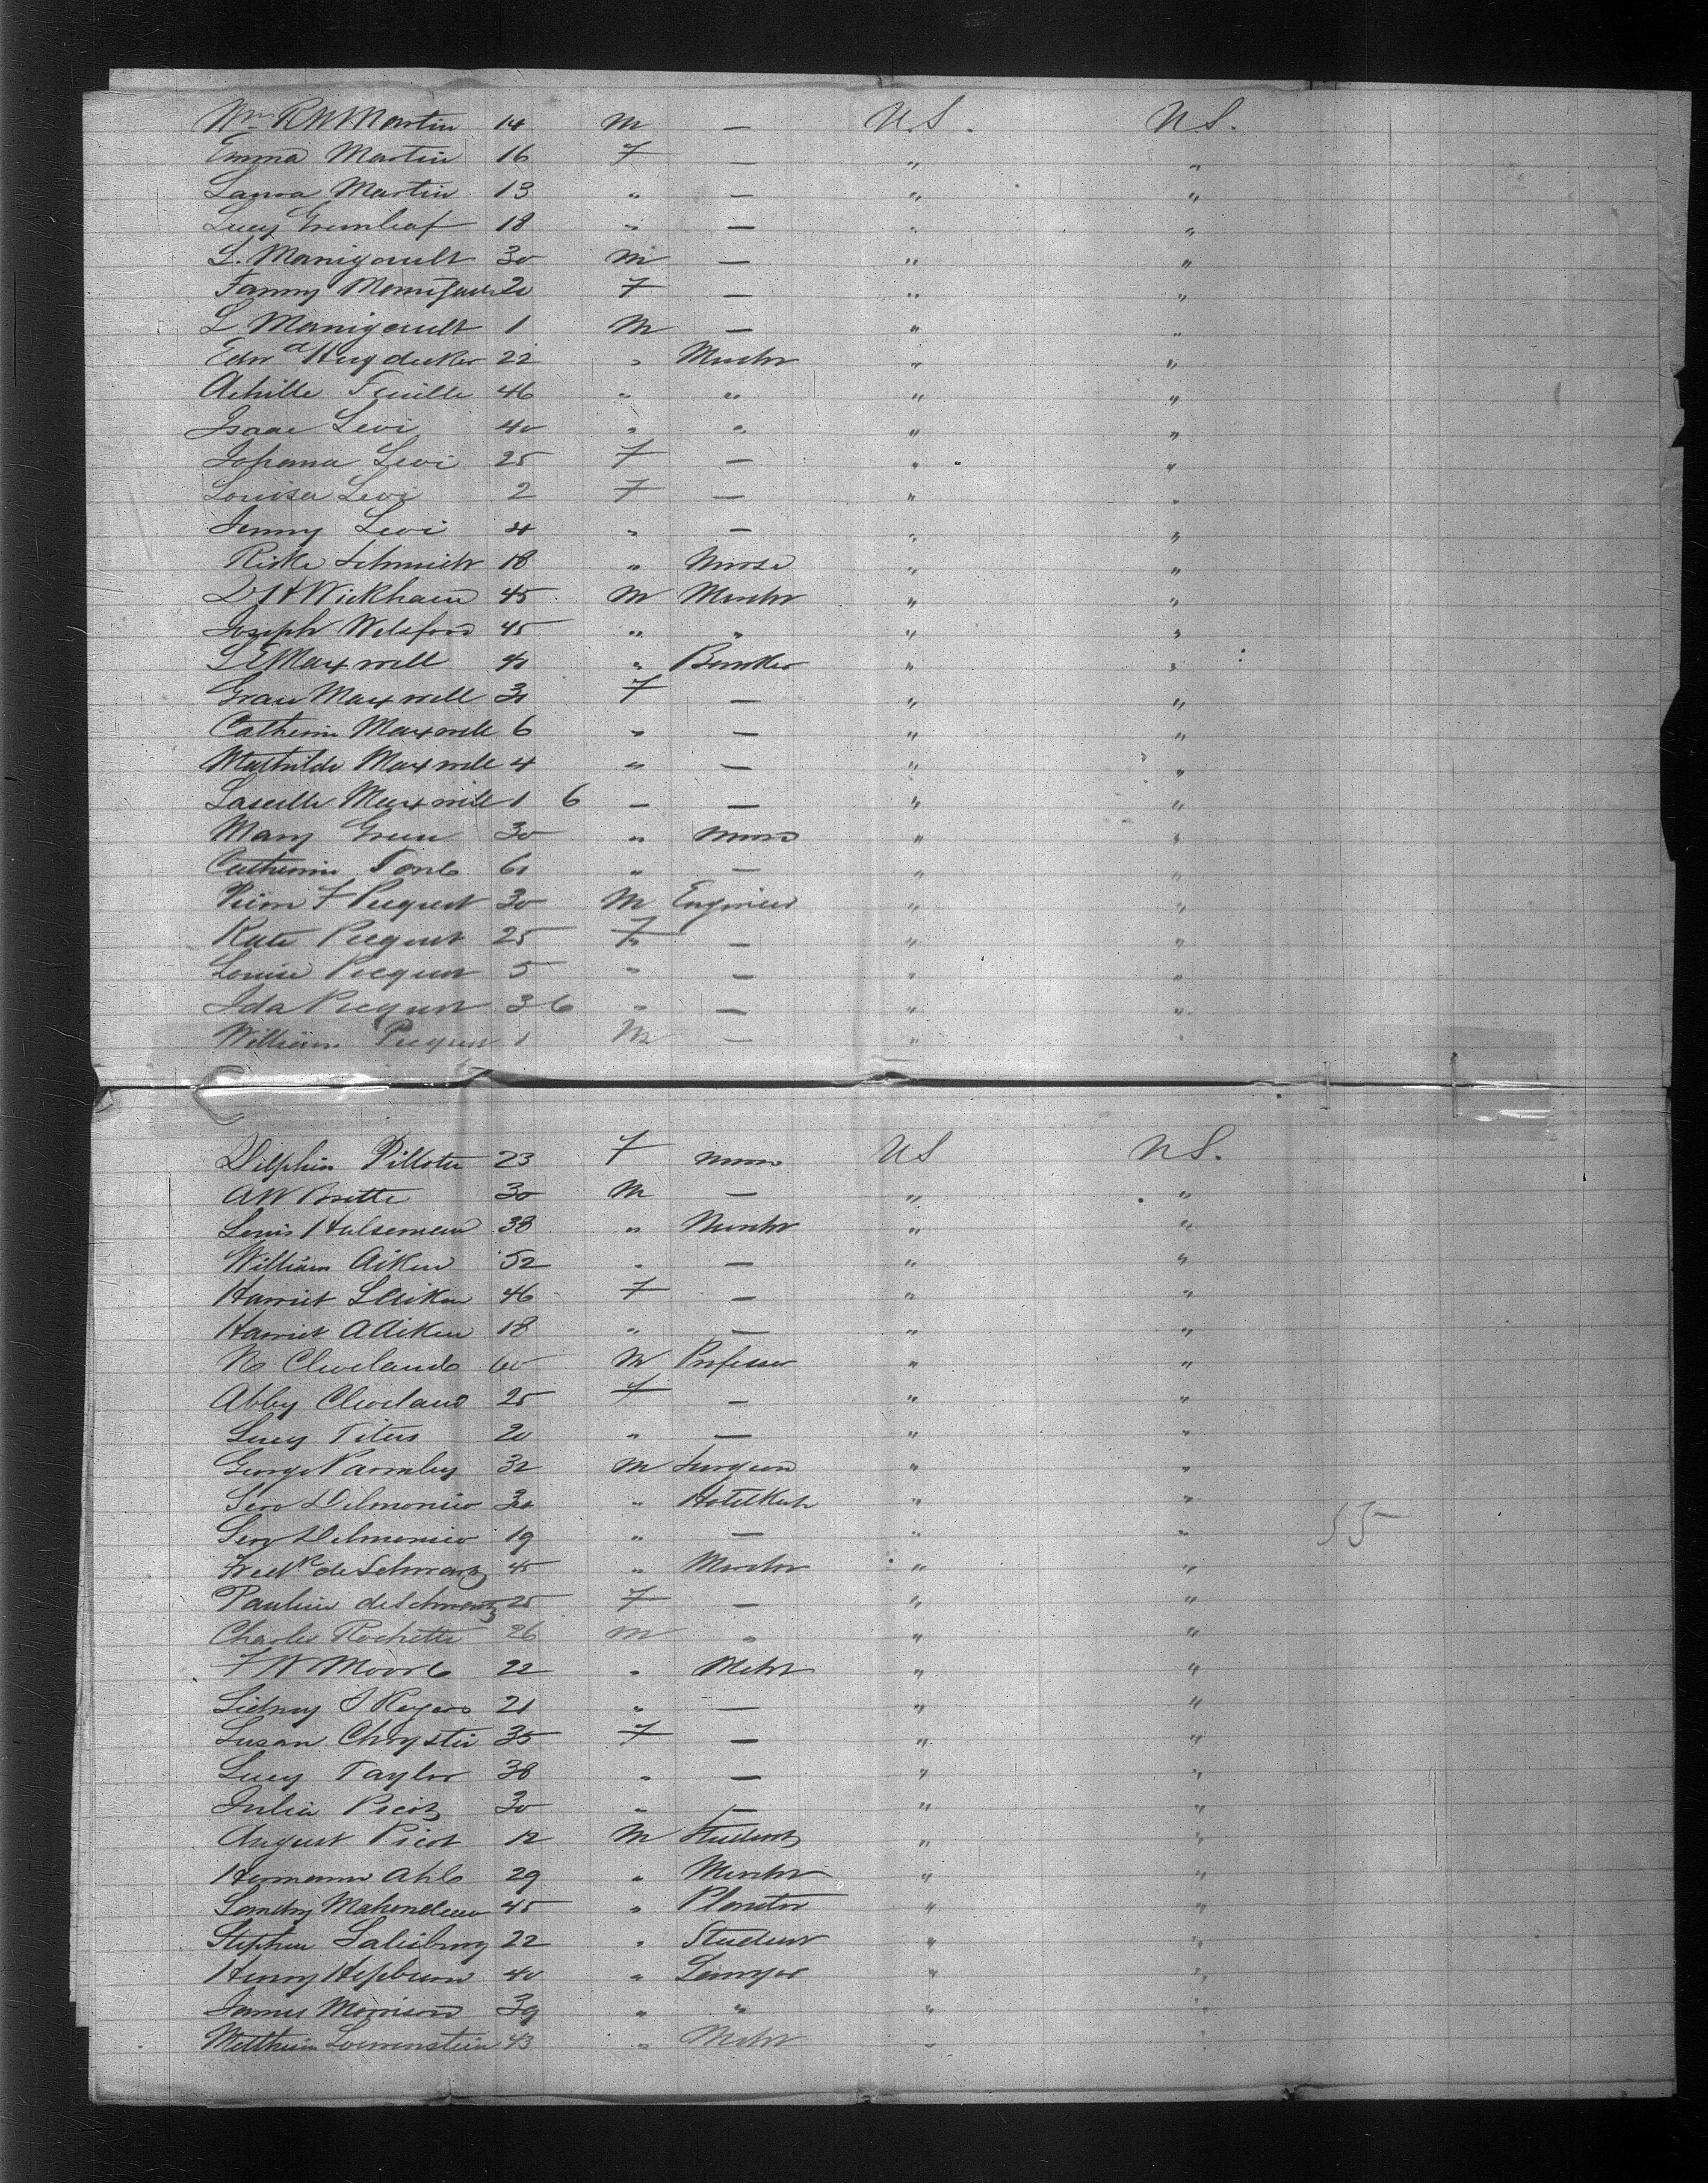 Wm R W Martin 14 M — U.S. U.S.
Emma Martin 16 F — " "
Laura Martin 13 " — " "
Lucy Greenleaf 18 " — " "
L. Manigault 30 M — " "
Fanny Manigault 20 F — " "
L Manigault 1 M — " "
Edwd Huydecker 22 " Mercht " "
Achille Feuille 46 " " " "
Isaac Levi 40 " " " "
Johanna Levi 25 F — " "
Louisa Levi 2 F — " "
Jenny Levi 4 " — " "
Rike Schmidt 18 " Nurse " "
D H Wickham 45 M Mercht " "
Joseph Welsford 45 " " " "
Maxwell " Banker " "
Grace Maxwell F — " "
Catherin Maxwell 6 " — " "
Mathilde Maxwell 4 " — " "
Maxwell 1 6 — — " "
Mary Green 30 " nurse " "
Catherine " — " "
Pierre F Pecquet 30 M Engineer " "
Kate Pecquet 25 F — " "
Louise Pecquet 5 " — " "
Ida Pecquet 3 6 " — " "
William Pecquet 1 M — " "
Delphin Pillotte 23 F nurse US US.
A W 30 M — " "
Louis Hulseman 38 " Mercht " "
William Aiken 52 " — " "
Harriet L Aiken 46 F — " "
Harriet A Aiken 18 " — " "
N. Cleveland 60 M Professor " "
Abby Cleveland 25 F — " "
Lucy Titus 20 " — " "
George Parmley 32 M Surgeon " "
Delmonico " " "
55
Delmonico 19 " — " "
Fredk de Schwartz 45 " Mercht " "
Paulin de Schwartz 25 F — " "
Charles Rochette 26 M " " "
F W Moore 22 " Mcht " "
Sidney J Rogers 21 " — " "
Susan Chrystie 35 F — " "
Lucy Taylor 38 " — " "
Julia Picot 30 " — " "
August Picot 12 M Student " "
Hermann Ahlb 29 " Mercht " "
45 " Planter " "
Stephen Salisbury 22 " Student " "
Henry Hepburn 40 " Lawyer " "
James Morrison 39 " " " "
Loewenstein 43 " Mcht " "